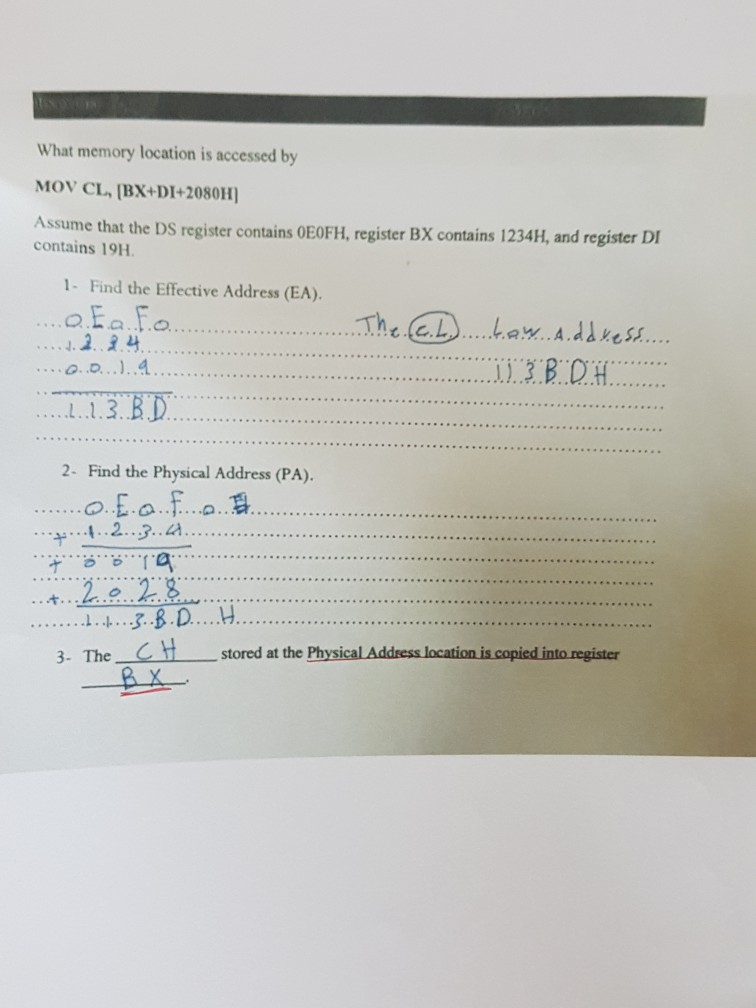 What memory location is accessed by
MOV CL, [BX+DI+2080H]
Assume that the DS register contains 0E0FH, register BX contains 1234H, and register DI
contains 19H.
1- Find the Effective Address (EA).
0 E 0 F 0 The CL Low Address
1 2 3 4
0 0 1 9 113BDH
113BD
2- Find the Physical Address (PA).
0 E 0 F 0
+ 1 2 3 4
+ 0 0 1 9
+ 2 0 2 8
1 1 3 B D H
3- The CH stored at the Physical Address location is copied into register
BX.